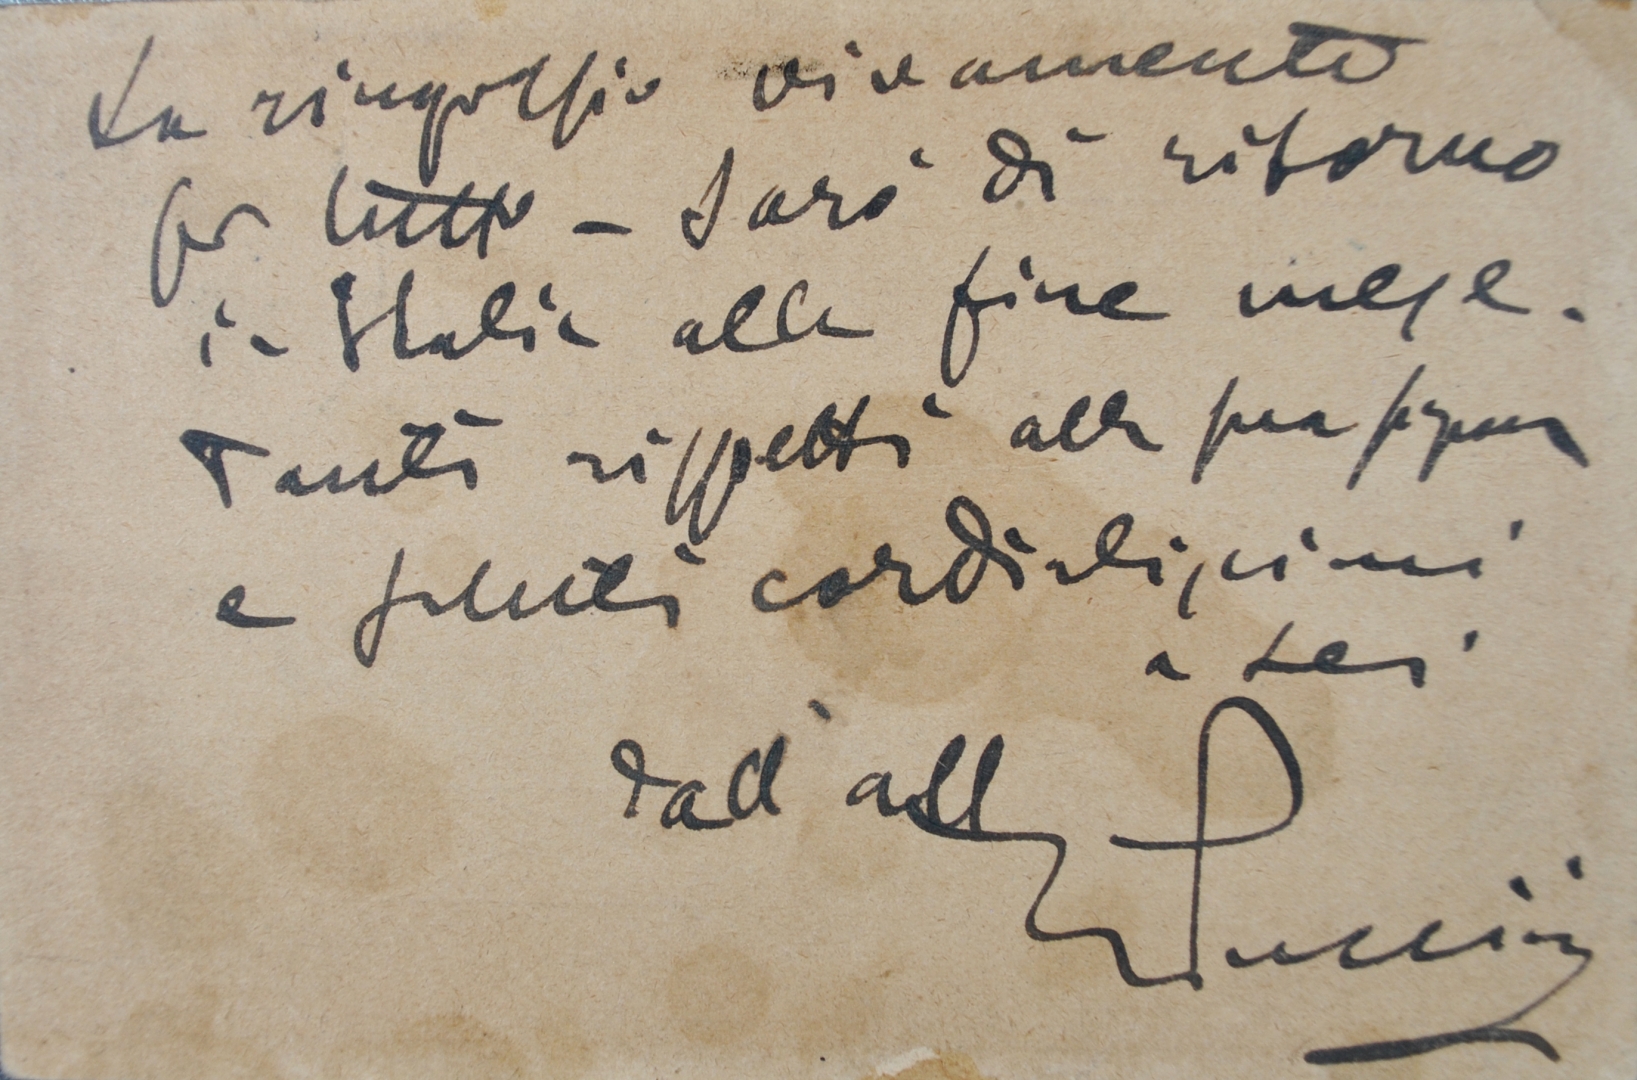 La ringrazio vivamente
per tutto – Sarò di ritorno
in Italia alla fine mese.
Tanti rispetti alla sua signora
e saluti cordialissimi
a Lei
dall' aff
Puccini